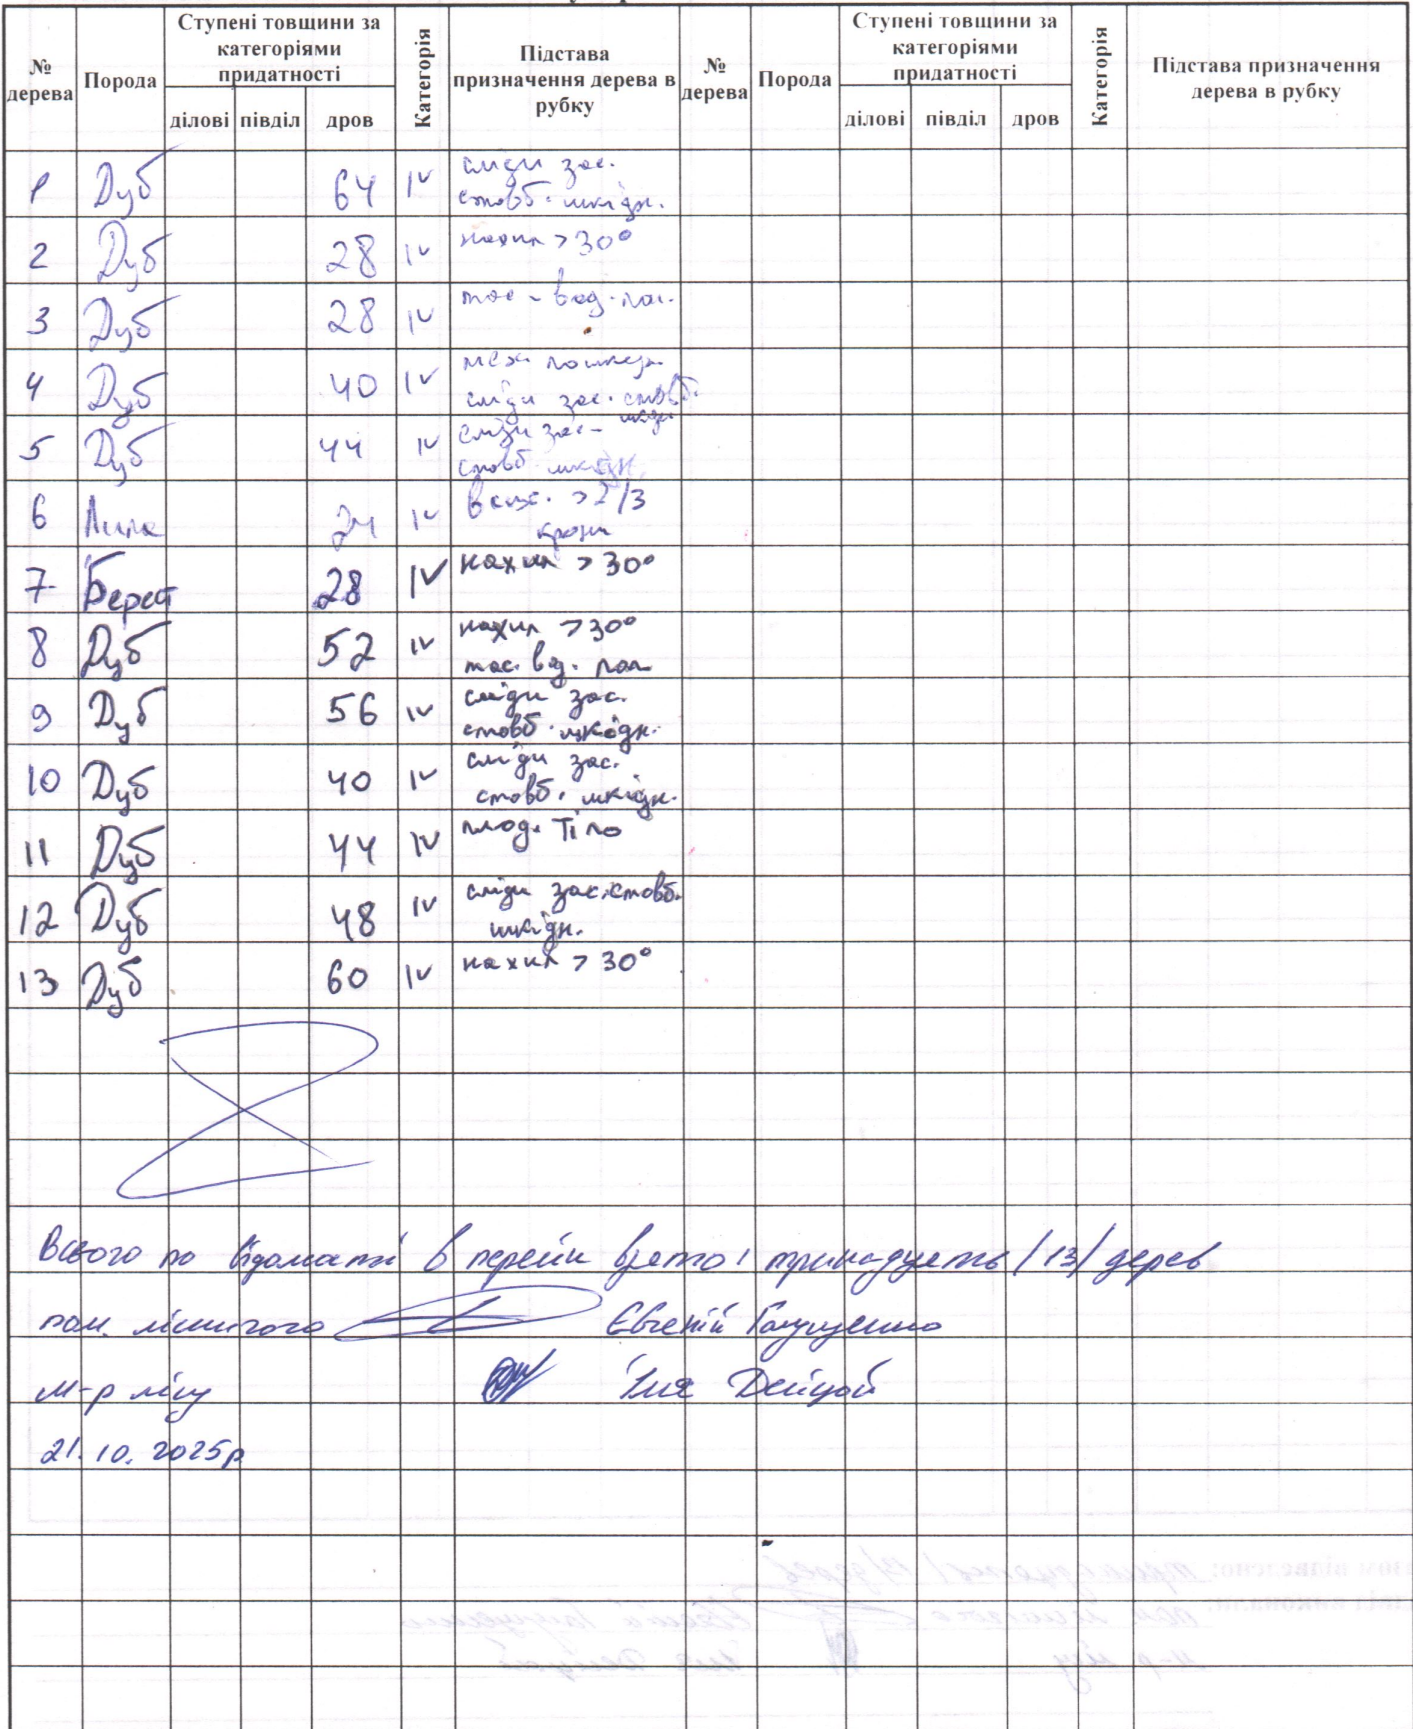 № дерева Порода Ступені товщини за категоріями придатності Категорія Підстава призначення дерева в рубку № дерева Порода Ступені товщини за категоріями придатності Категорія Підстава призначення дерева в рубку
ділові півділ дров ділові півділ дров
1 Дуб 64 IV сліди зас.
стовб. шкідн.
2 Дуб 28 IV нахил > 30°
3 Дуб 28 IV
4 Дуб 40 IV мех.
сліди зас. стовб.
шкідн.
5 Дуб 44 IV сліди зас.
стовб. шкідн.
6 Липа 24 IV всих. > 2/3
крони
7 Берест 28 IV нахил > 30°
8 Дуб 52 IV нахил > 30°
9 Дуб 56 IV сліди зас.
стовб. шкідн.
10 Дуб 40 IV сліди зас.
стовб. шкідн.
11 Дуб 44 IV плод. тіло
12 Дуб 48 IV сліди зас. стовб.
шкідн.
13 Дуб 60 IV нахил > 30°
Всього по відомості в тринадцять /13/ дерев
пом. лісничого Євгеній
м-р лісу Ілля
21.10.2025р